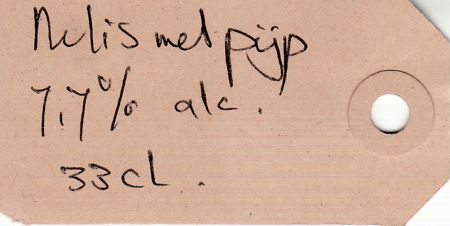 Nelis met pijp
7,7% alc.
33 cl.